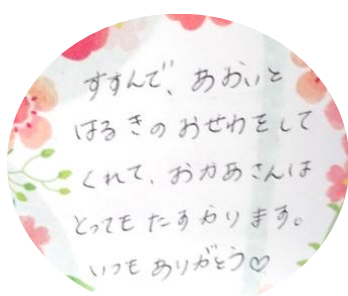 すすんで、あおいと
はるきのおせわをして
くれて、おかあさんは
とってもたすかります。
いつもありがとう♡